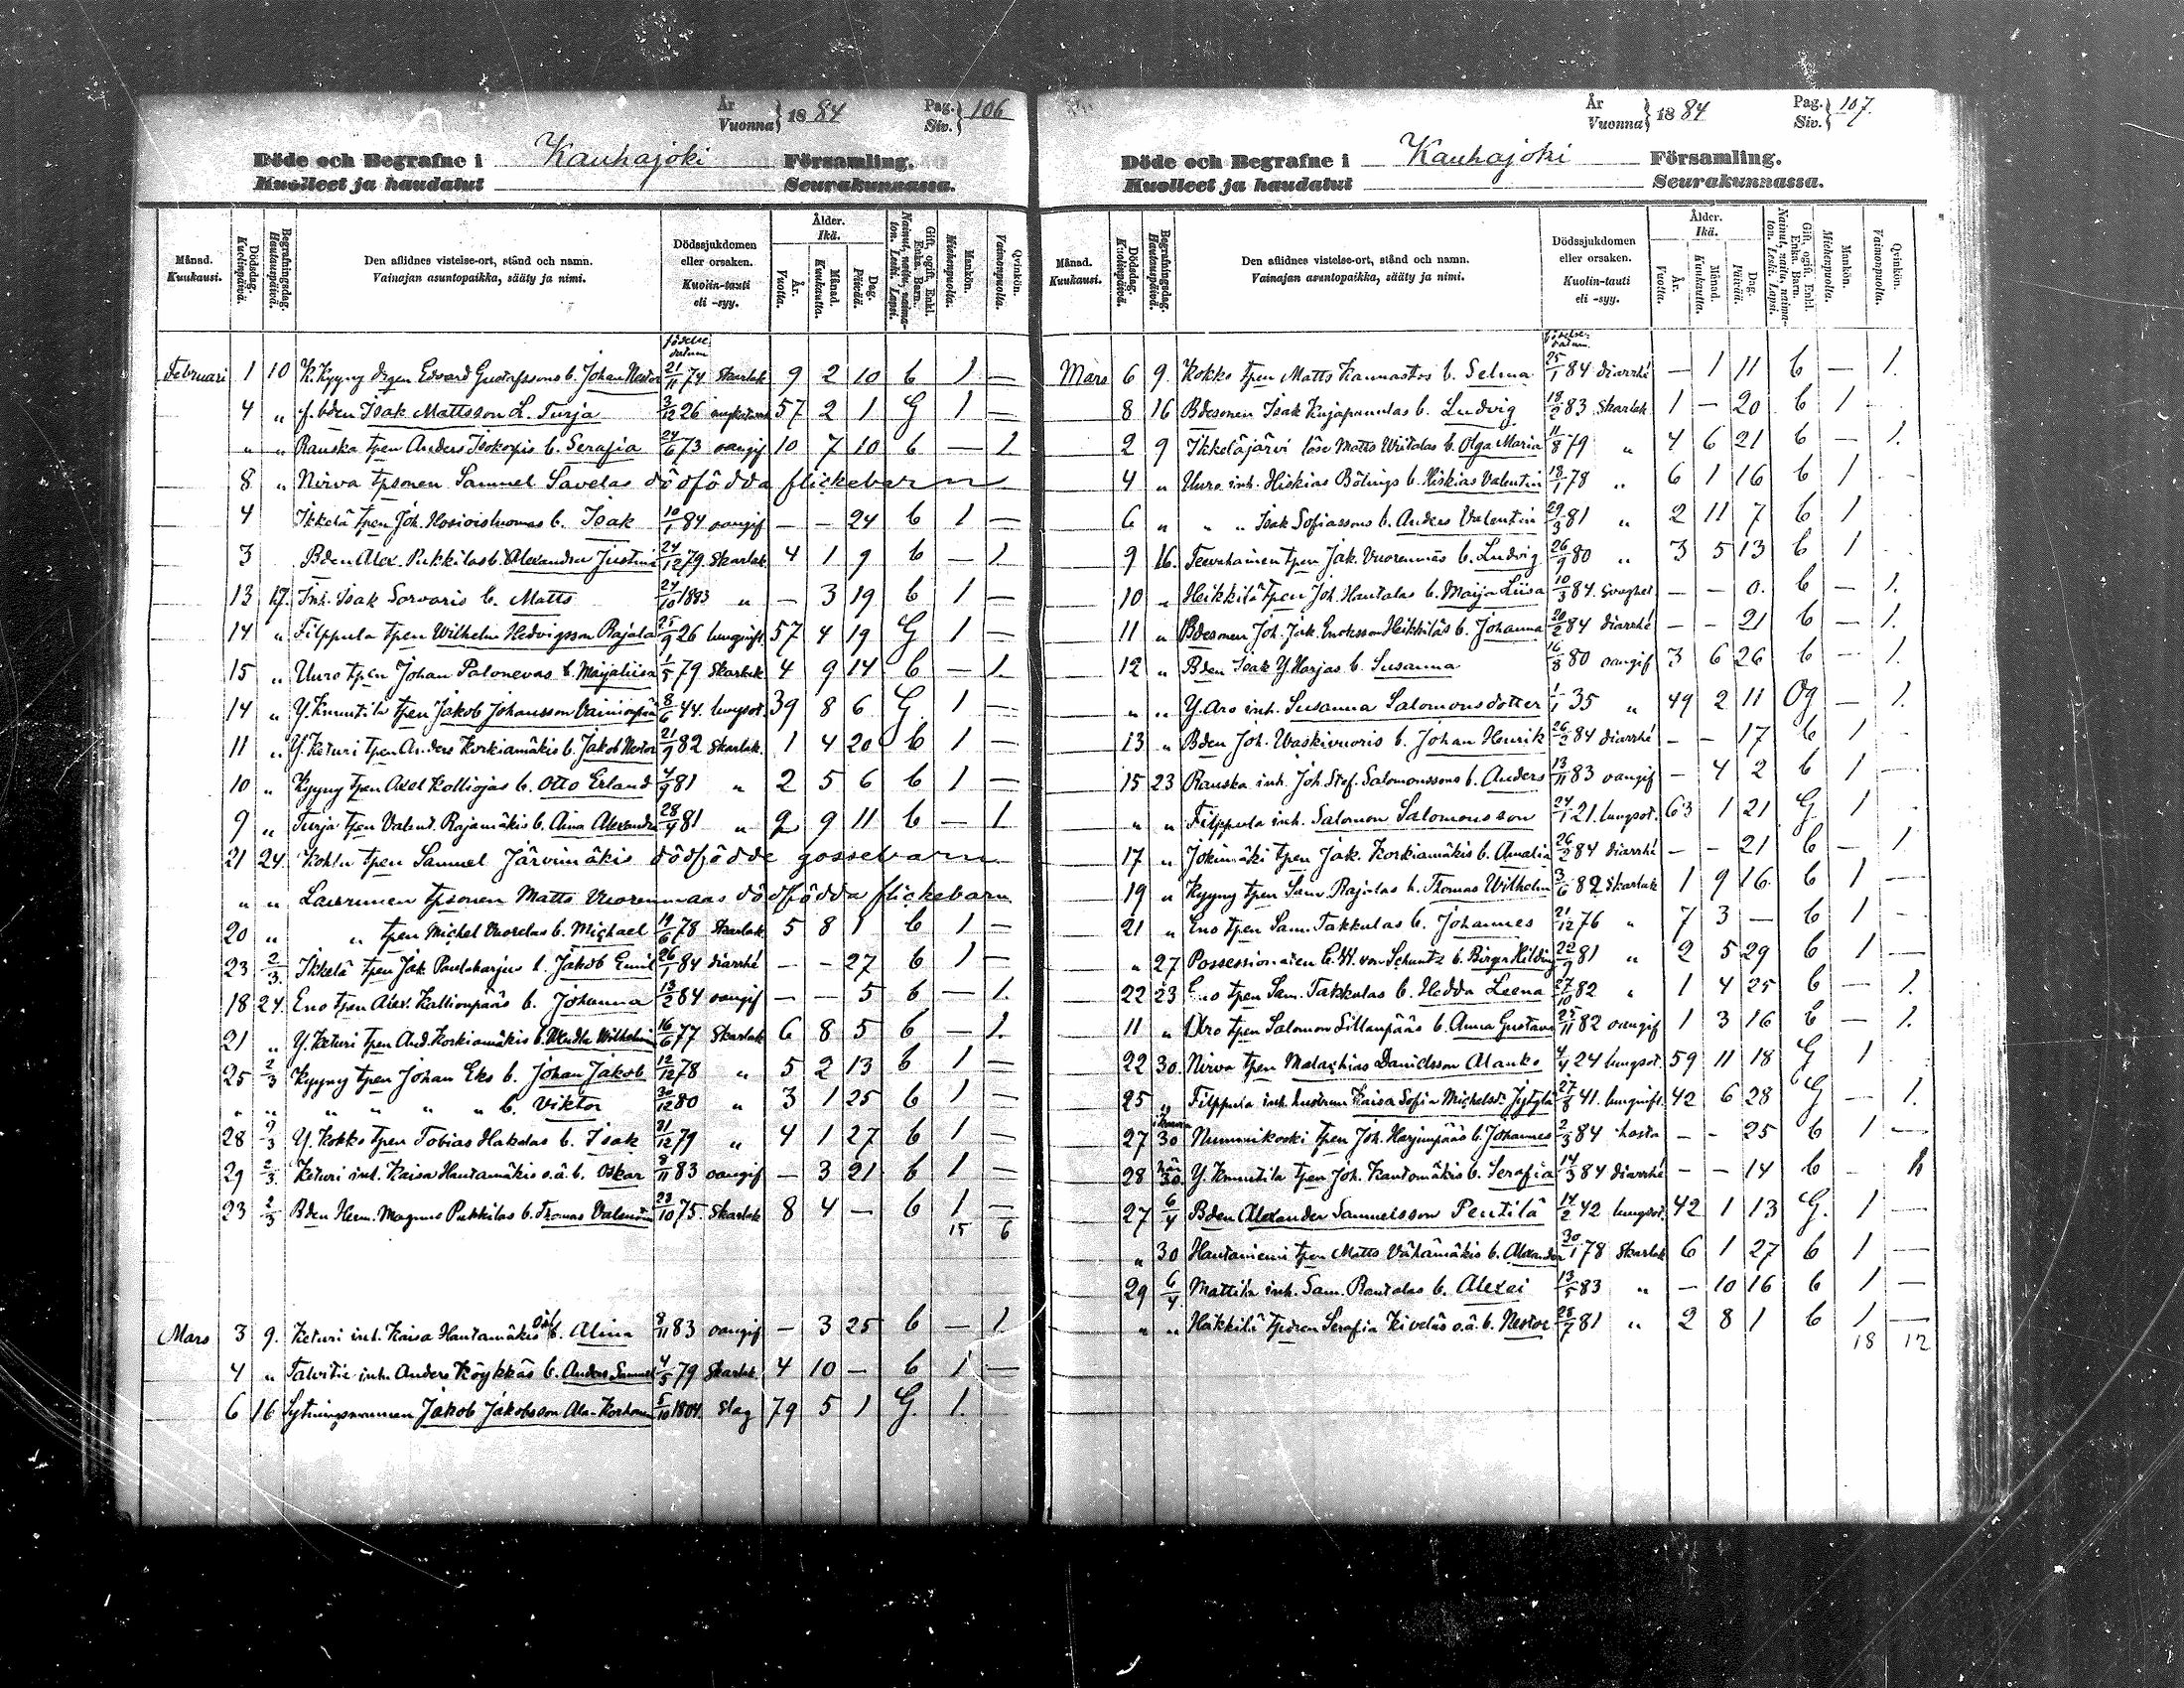 År
Vuonna } 1884 Pag.
Siv. } 106
Döde och Begrafne i Kauhajoki Församling.
Kuolleet ja haudatut Seurakunnassa.
Månad. Kuukausi. Dödsdag. Kuolinpäivä. Begrafningsdag. Hautauspäivä. Den aflidnes vistelse-ort, stånd och namn. Vainajan asuntopaikka, sääty ja nimi. Dödssjukdomen eller orsaken. Kuolin-tauti eli -syy. Ålder. Ikä. År. Vuotta. Månad. Kuukautta. Dag. Päivää. Gift, ogift, Enkl. Enka. Barn. Nainut, naitu, naimaton. Leski. Lapsi. Mankön. Miehenpuolta. Qvinkön. Vaimonpuolta.
födelse datum
Februari 1 10 K. Kyyny drgen Edvard Gustafssons b. Johan Nestor 21/11 74 Skarlak 9 2 10 b 1 —
4 " f. bden Isak Mattsson L. Turja 3/12 26 57 2 1 G 1 —
" " Rauska tpen Anders Isokorpis b. Serafia 24/6 73 oangif 10 7 10 b — 1.
8 " Nirva tpsonen Samuel Savelas dödfödda flickebarn —
4 Ikkelä tpen Joh. Hosioisluomas b. Isak 10/1 84 oangif — — 24 b 1 —
3 Bden Alex. Pukkilas b. Alexandra Justina 24/12 79. Skarlak 4 1 9 b — 1.
13 17. Inh. Isak Sorvaris b. Matts 24/10 1883 " — 3 19 b 1 —
14 " Filppula tpen Wilhelm Hedvigsson Rajala 25/9 26 lunginfl. 57 4 19 G 1 —
15 " Uuro tpen Johan Palonevas b. Maijaliisa 1/5 79 Skarlak 4 9 14 b — 1.
14 " Y. Knuutila tpen Jakob Johansson Vainionpää 8/6 44. lungsot. 39 8 6 G. 1 —
11 " Y. Keturi tpen Anders Korkiamäkis b. Jakob Nestor 21/9 82 Skarlak. 1 4 20 b 1 —
10 " Kyyny tpen Axel Kalliojas b. Otto Erland 4/9 81 " 2 5 6 b 1 —
9 " Turja tpen Valent. Rajamäkis b. Aina Alexandra 28/4 81 " 2 9 11 b — 1
21 24. Kohlu tpen Samuel Järvimäkis dödfödde gossebarn
" " Laurunen tpsonen Matts Vuorenmaas dödfödda flickebarn
20 " " tpen Michel Vuorelas b. Michael 19/6 78 Skarlak. 5 8 1 b 1 —
23 2/3. Ikkelä tpen Jak. Paulaharjus b. Jakob Emil 26/1 84 diarrhé — — 27 b 1 —
18 24. Eno tpen Alex. Kallionpääs b. Johanna 13/2 84 oangif — — 5 b — 1.
21 " Y. Keturi tpen And. Korkiamäkis b. Wendla Wilhelmina 16/6 77 Skarlak 6 8 5 b — 1.
25 2/3 Kyyny tpen Johan Eks b. Johan Jakob 12/12 78 " 5 2 13 b 1 —
" " " " " " b. Viktor 30/12 80 " 3 1 25 b 1 —
28 9/3 Y. Kokko tpen Tobias Hakalas b. Isak 31/12 79 " 4 1 27 b 1 —
29 2/3 Keturi inh. Kaisa Hautamäkis o.ä. b. Oskar 8/11 83 oangif — 3 21 b 1 —
23 2/3 Bden Herm. Magnus Pukkilas b. Thomas Valentin 23/10 75 Skarlak 8 4 — b 1 —
15 6
Mars 3 9. Keturi inh. Kaisa Hautamäkis oä b. Alina 8/11 83 oangif — 3 25 b — 1.
4 " Talvitie inh. Anders Köykkäs b. Anders Samuel 4/5 79 Skarlak. 4 10 — b 1 —
6 16 Sytningsmannen Jakob Jakobsson Ala-Korhonen 5/10 1804. Slag 79 5 1 G. 1.
År
Vuonna } 1884 Pag.
Siv. } 107.
Döde och Begrafne i Kauhajoki Församling.
Kuolleet ja haudatut Seurakunnassa.
Månad. Kuukausi. Dödsdag. Kuolinpäivä. Begrafningsdag. Hautauspäivä. Den aflidnes vistelse-ort, stånd och namn. Vainajan asuntopaikka, sääty ja nimi. Dödssjukdomen eller orsaken. Kuolin-tauti eli -syy. Ålder. Ikä. År. Vuotta. Månad. Kuukautta. Dag. Päivää. Gift, ogift, Enkl. Enka. Barn. Nainut, naitu, naimaton. Leski. Lapsi. Mankön. Miehenpuolta. Qvinkön. Vaimonpuolta.
födelse datum.
Mars 6 9. Kokko tpen Matts Kannastos b. Selma 25/1 84 diarrhé — 1 11 b — 1.
8 16 Bdesonen Isak Kujapunulas b. Ludvig 18/2 83 Skarlak. 1 — 20 b 1
2 9 Ikkeläjärvi löse Matts Wiitalas b. Olga Maria 11/8 79 " 4 6 21 b — 1.
4 " Uuro inh. Hiskias Bölings b. Hiskias Valentin 18/1 78 " 6 1 16 b 1
6 " " " Isak Sofiassons b. Anders Valentin 29/3 81 " 2 11 7 b 1
9 16. Teevahainen tpen Jak. Vuorenmäs b. Ludvig 26/9 80 " 3 5 13 b 1
10 " Heikkilä tpen Joh. Hautalas b. Maija Liisa 10/3 84. Svaghet — — 0. b — 1.
11 " Bdesonen Joh. Jak. Enoksson Heikkiläs b. Johanna 20/2 84 diarrhé — — 21 b — 1.
12 " Bden Isak Y. Harjas b. Susanna 16/8 80 oangif 3 6 26 b — 1.
" " Y. Aro inh. Susanna Salomonsdotter 1/1 35 " 49 2 11 Og — 1.
13 " Bden Joh. Waskivuoris b. Johan Henrik 26/2 84 diarrhé — — 17 b 1
15 23 Rauska inh. Joh. Stef. Salomonssons b. Anders 13/11 83 oangif — 4 2 b 1 —
" " Filppula inh. Salomon Salomonsson 24/1 21. lungsot. 63 1 21 G. 1
17 " Jokimäki tpen Jak. Korkiamäkis b. Amalia 26/2 84 diarrhé — — 21 b — 1
19 " Kyyny tpen Sam. Rajalas b. Thomas Wilhelm 3/6 82 Skarlak 1 9 16. b 1 —
21 " Eno tpen Sam. Takkulas b. Johannes 21/12 76 " 7 3 — b 1 —
" 27 Possessionaten C. W. von Schantz b. Birger Hilding 22/9 81 " 2 5 29 b 1 —
22 23 Eno tpen Sam. Takkulas b. Hedda Leena 27/10 82 " 1 4 25 b — 1.
11 " Aro tpen Salomon Sillanpääs b. Anna Gustava 25/11 82 oangif 1 3 16 b — 1.
22 30. Nirva tpen Malachias Danielsson Alanko 4/4 24 lungsot. 59 11 18 G 1
25 " Filppula inh. hustrun Kaisa Sofia Michelsdr. Jytylä 27/8 41. lunginfl. 42 6 28 G — 1.
27 30 Nummikoski tpen Joh. Harjunpääs b. Johannes 2/3 84 hosta — — 25 b 1 —
28 30. Y. Knuutila tpen Joh. Kautomäkis b. Serafia 14/3 84 diarrhé — — 14 b — 1.
27 6/4 Bden Alexander Samuelsson Pentilä 14/2 42 lungsot. 42 1 13 G. 1 —
" 30 Hautaniemi tpen Matts Vähämäkis b. Alexander 30/1 78 Skarlak 6 1 27 b 1 —
29 6/4. Mattila inh. Sam. Rantalas b. Alexei 13/5 83 " — 10 16 b 1 —
" " Häkkilä tpdren Serafia Kiveläs o.ä. b. Nestor 28/7 81 " 2 8 1 b 1 —
18 12